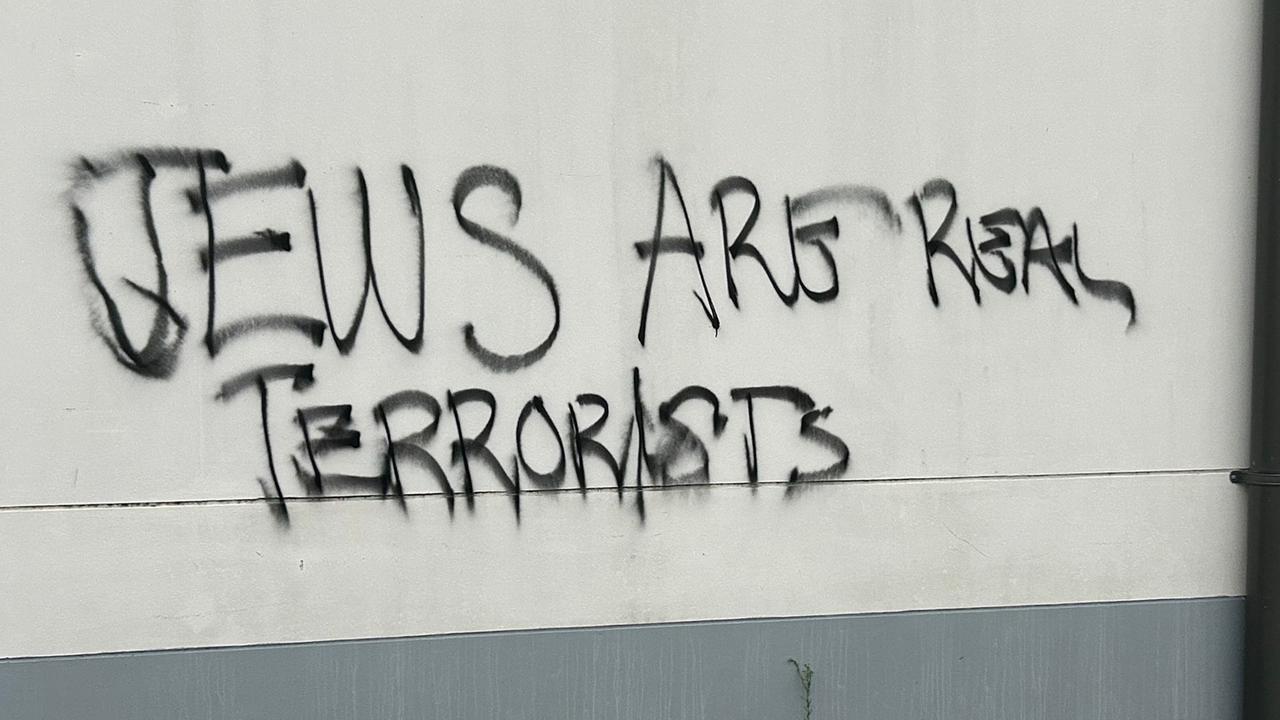 JEWS ARE REAL
TERRORISTS